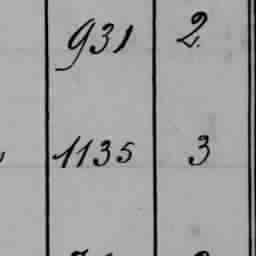 931 2.
1135 3